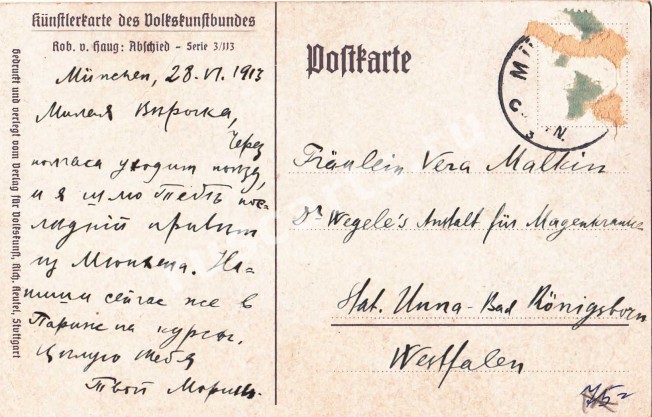 Künstlerkarte des Volkskunstbundes
Rob. v. Haug: Abschied - Serie 3/113
Gedruckt und verlegt vom Verlag für Volkskunst, Rich. Keutel, Stuttgart
München, 28.VI.1913
Милая Вирочка,
Через
полчаса уходит поезд,
и я шлю Тебѣ пос-
ледний привет
из Мюнхена. На-
пиши сейчас же в
Париж на курсы.
Целую тебя
Твой Морицъ.
Postkarte
MÜ
N.
Fräulein Vera Malkin
Dr Wegele's Anstalt für Magenkranke
Stat. Unna-Bad Königsborn
Westfalen
75-